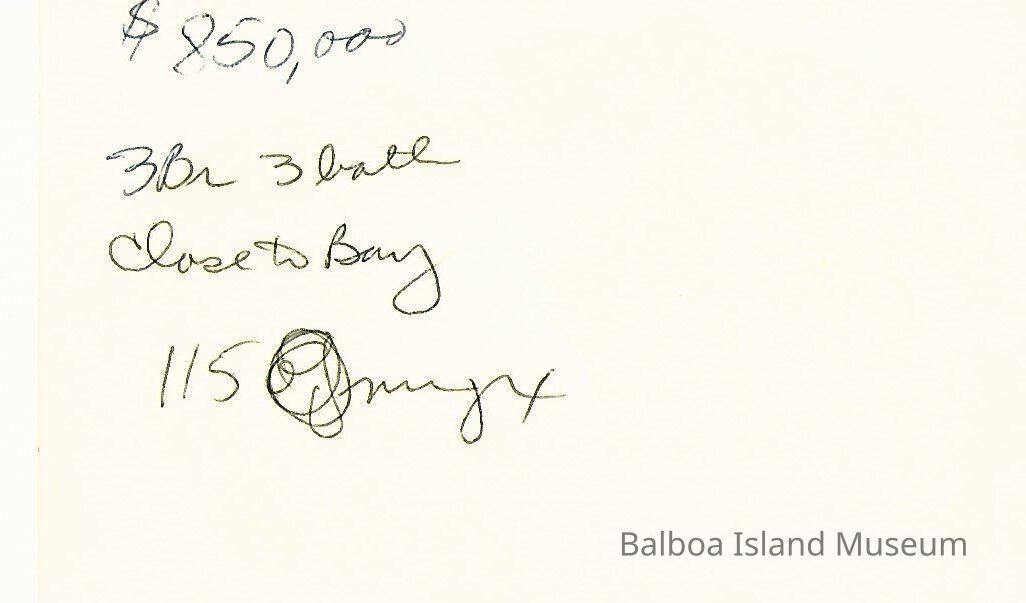 $850,000
3Br 3 bath
Close to Bay
115 Onyx
Balboa Island Museum